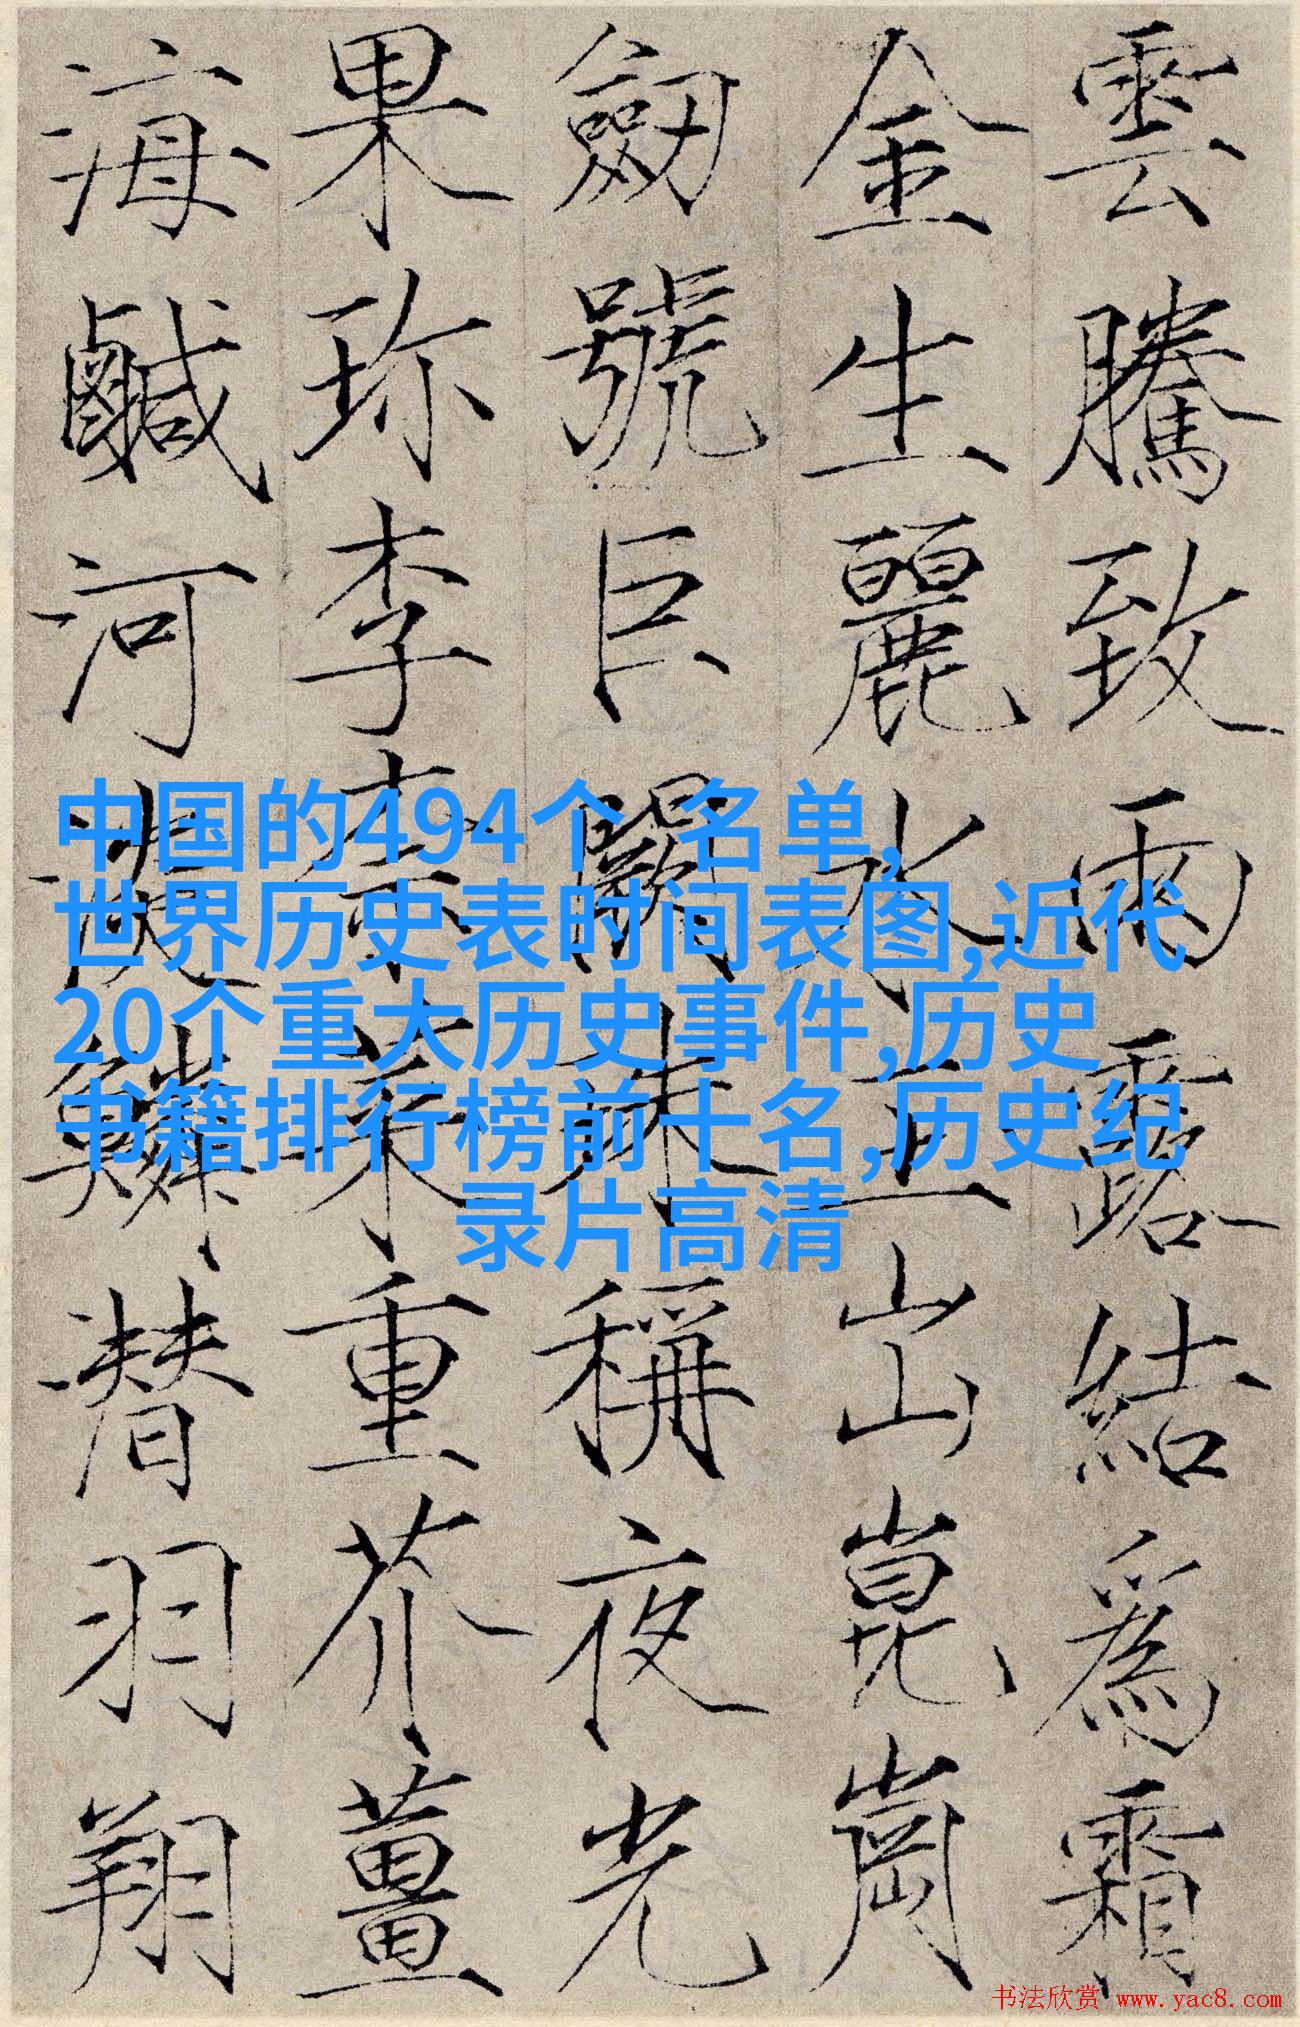 雲騰致雨露結爲霜
金生麗水玉出崑崗
劒號巨闕珠稱夜光
果珎李柰菜重芥薑
海鹹河淡鱗潛羽翔
中国的494个 名单,
世界历史表时间表图,近代
20个重大历史事件,历史
书籍排行榜前十名,历史纪
录片高清
书法欣赏 www.yac8.com